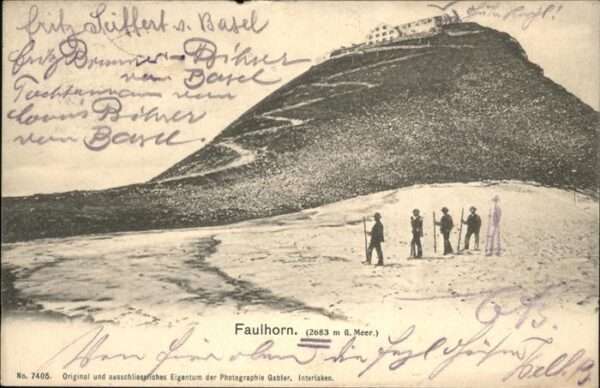 Fritz Seiffert v. Basel
Fritz Brunner-Böhrer
von Basel
Tochtermann von
Louis Böhrer
von Basel.
Faulhorn. (2683 m ü. Meer.)
Von hier oben die
No. 7405. Original und ausschliessliches Eigentum der Photographie Gabler, Interlaken.